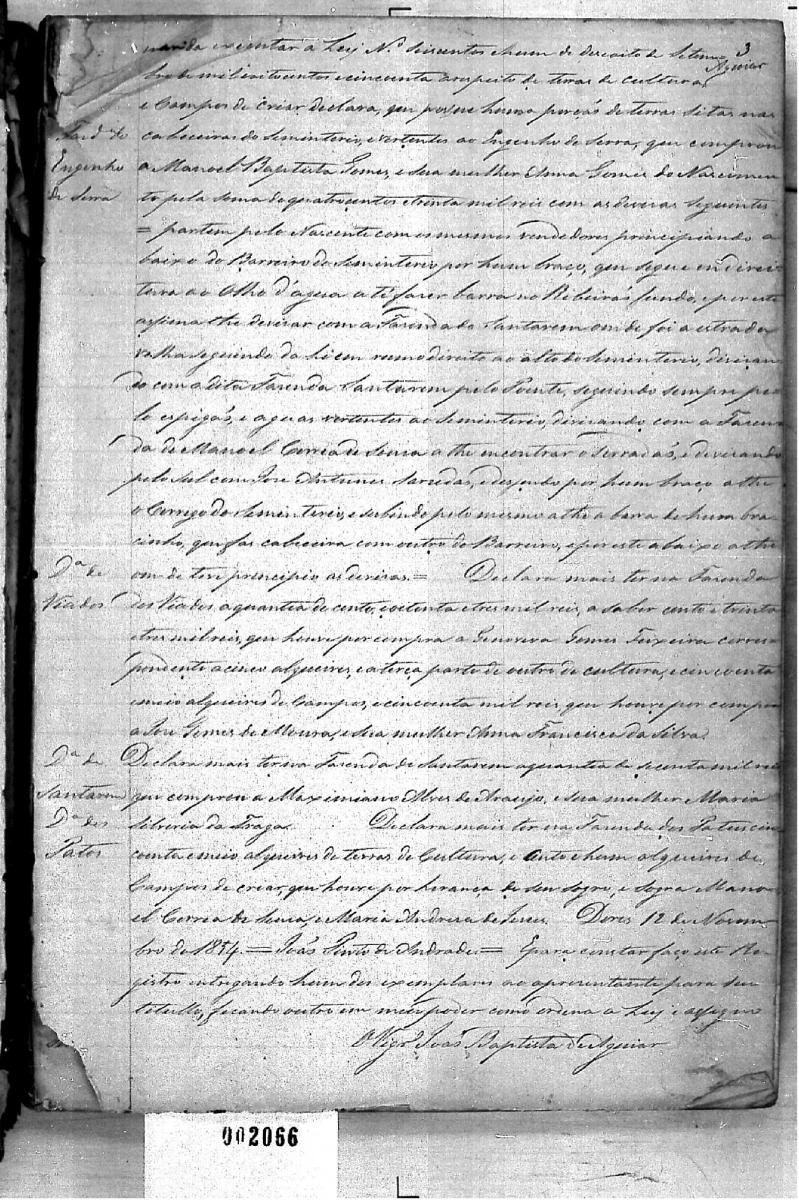 3
Aguiar
executar a Ley N.º Seiscentos e hum de desoito de Setem
bro de mil oitocentos e cincoenta a respeito de terras de cultura
e Campos de criar, declara, que possue huma porçaõ de terras sitas nas
Fazd. do cabeceiras do Seminterio, e vertentes ao Engenho de Serra, que comprou
Engenho a Manoel Baptista Gomes, e sua mulher Anna Gomes do Nascimen
de Serra to pela soma de quatrocentos e trinta mil reis com as devisas seguintes
= partem pelo Nascente com os mesmos vendedores principiando a
baixo do Barreiro do Seminterio por hum braço, que segue em direi
tura ao Olho d'agua a té fazer barra no Ribeiraõ fundo, e por este
assima the devisar com a Fazenda de Santarem onde foi a estrada
velha seguindo da hi em rumo direito ao alto do Seminterio, devisan
do com a dita Fazenda Santarem pelo Poente, seguindo sempre pe
lo espigaõ, e aguas vertentes ao Seminterio, devisando com a Fazen
da de Manoel Correa de Sousa athe encontrar o Serradaõ, e devisando
pelo Sul com Jose Antunes e desendo por hum braço athe
o Corrego do Seminterio, e subindo pelo mesmo athe a barra de hum bra
cinho, que fas cabeceira com outro do Barreiro, e por este abaixo athe
D.ª de onde teve principio as devisas. = Declara mais ter na Fazenda
Viados dos Viados a quantia de cento, e oitenta e tres mil reis, a saber cento e trinta
e tres mil reis, que houve por compra a Genoveva Gomes Teixeira corres
pondente a cinco alqueires, e a terça parte de outro de cultura, e cincoenta
e meio alqueires de Campos, e cincoenta mil reis, que houve por compra
a Jose Gomes de Moura, e sua mulher Anna Francisca da Silva.
D.ª de Declara mais ter na Fazenda de Santarem a quantia de secenta mil reis
Santarem que comprou a Maximiano Alves de Araujo, e sua mulher Maria
D.ª dos Silveria da Fraga. Declara mais ter na Fazenda dos Patos cin
Patos coenta e meio alqueires de terras de Cultura, e cento e hum alqueires de
Campos de crear, que houve por herança de seu sogro, e sogra Mano
el Correa de Sousa, e Maria Andreza de Jesus. Dores 12 de Novem
bro de 1854. = Joaõ Pinto de Andrade = E para constar faço este Re
gistro entregando hum dos exemplares ao apresentante para seu
titullo, ficando outro em meu poder como ordena a Ley e assigno
O Vigr.º Joaõ Baptista de Aguiar
002066